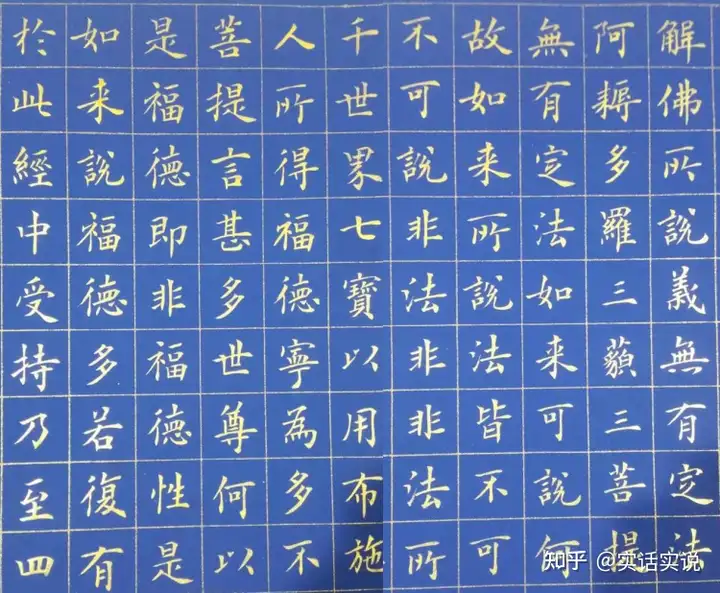 解佛所說義無有定法
阿耨多羅三藐三菩提
無有定法如来可說何
故如来所說法皆不可
不可說非法非非法所
千世界七寶以用布施
人所得福德寧為多不
菩提言甚多世尊何以
是福德即非福德性是
如来說福德多若復有
於此經中受持乃至四
知乎 @实话实说